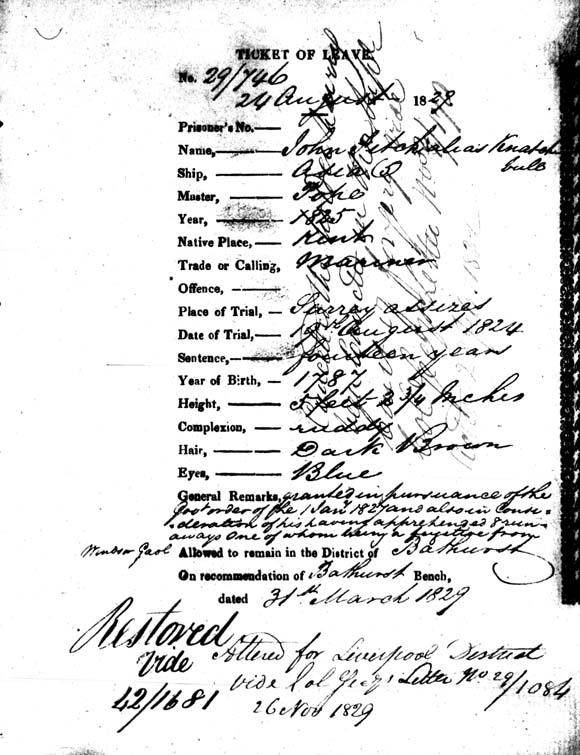 TICKET OF LEAVE.
No. 29/746
24 August 1829
Prisoner's No.—
Name,— John Fitch alias Knatch
bull
Ship,— Asia (1)
Master,— Pope
Year,— 1825
Native Place,— Kent
Trade or Calling, Mariner
Offence,—
Place of Trial,— Surrey assizes
Date of Trial,— August 1824
Sentence,— fourteen years
Year of Birth,— 1787
Height,— 5 feet 2 3/4 Inches
Complexion,— ruddy
Hair,— Dark Brown
Eyes,— Blue
General Remarks, granted in pursuance of the
Govt order of the 1 Jany 1827 and also in consi-
-deration of his having apprehended 8 run-
aways one of whom being a fugitive from
Windsor Gaol Allowed to remain in the District of Bathurst
On recommendation of Bathurst Bench,
dated 31st March 1829
Restored
Vide
42/1681
Altered for Liverpool District
vide Col Secy's Letter No 29/1084
26 Nov 1829